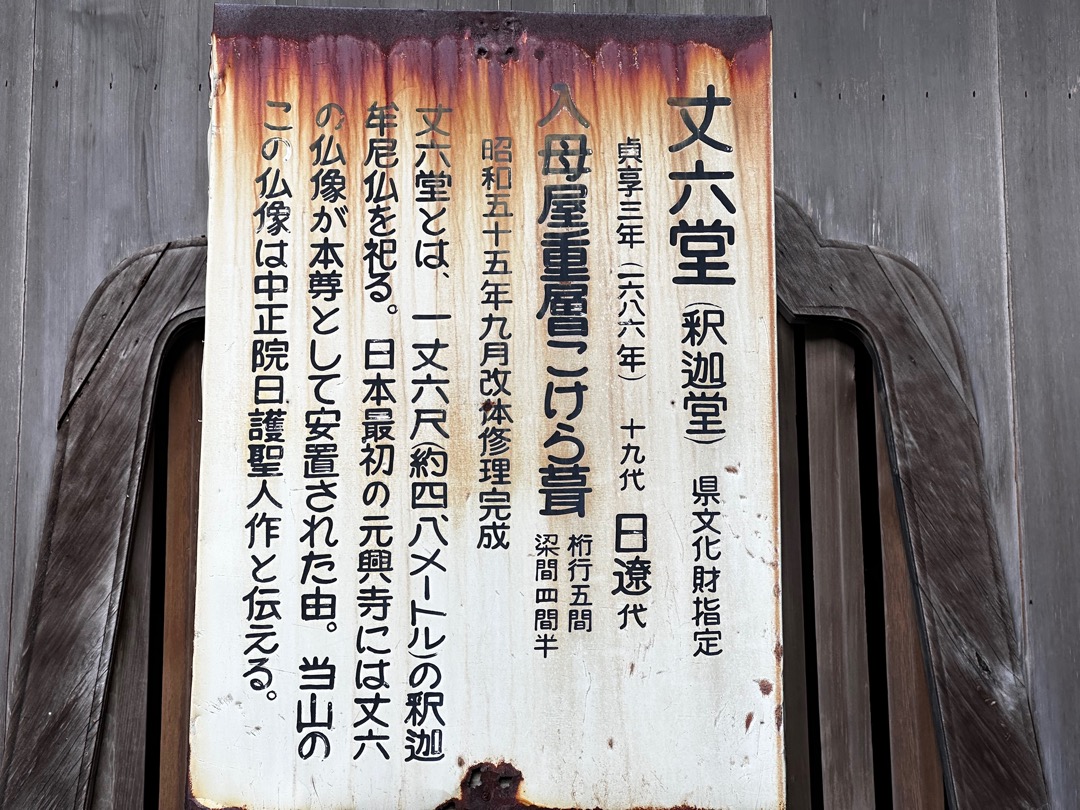 丈六堂(釈迦堂) 県文化財指定
貞享三年(一六八六年) 十九代 日遼代
入母屋重層こけら葺 桁行五間
梁間四間半
昭和五十五年九月改体修理完成
丈六堂とは、一丈六尺(約四・八メートル)の釈迦
牟尼仏を祀る。日本最初の元興寺には丈六
の仏像が本尊として安置された由。当山の
この仏像は中正院日護聖人作と伝える。